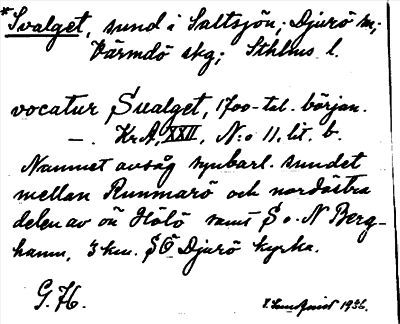 *Svalget, sund i Saltsjön; Djurö sn,
Värmdö skg; Sthlms l.
vocatur Sualget, 1700-tal. början.
—. KrA, XXII, N:o 11. lit. b.
Namnet avsåg synbarl. sundet
mellan Runmarö och nordöstra
delen av ön Hölö samt S o. N Berg-
hamn, 3 km. SÖ Djurö kyrka.
G. H.
1936.